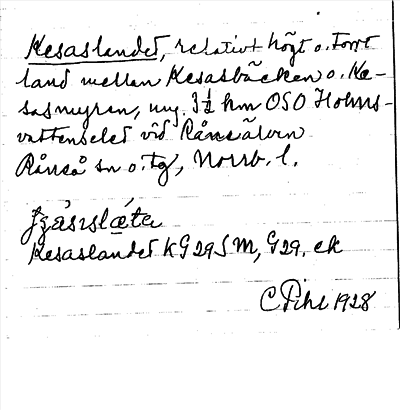 Kesaslandet, relativt högt o. torrt
land mellan Kesasbäcken o. Ke-
sasmyran, 3 1/2 km OSO Holms-
vattenselet vid Råneälven
Råneå sn o. tg, Norrb. l.
Kesaslandet KG 29 SM, G 29. ek
C Pihl 1928